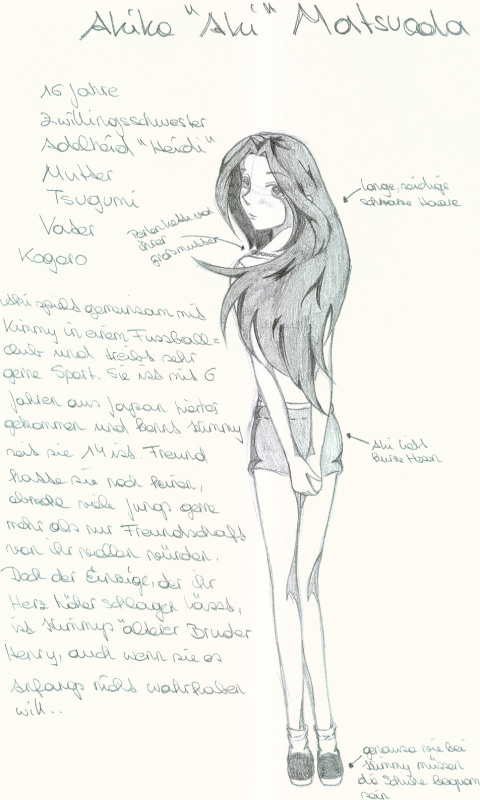 Akiko "Aki" Matsuoda
16 Jahre
Zwillingsschwester
Adelheid "Heidi"
Mutter
Tsugumi
Vater
Kogoro
Perlenkette von
ihrer
Großmutter
lange, seidige
schwarze Haare
Aki spielt gemeinsam mit
Kimmy in einem Fussball=
club und treibt sehr
gerne Sport. Sie ist mit 6
Jahren aus Japan hierher
gekommen und kennt Kimmy
seit sie 14 ist. Freund
hatte sie noch keinen,
obwohl viele Jungs gerne
mehr als nur Freundschaft
von ihr wollen würden.
Doch der Einzige, der ihr
Herz höher schlagen lässt,
ist Kimmys älterer Bruder
Henry, auch wenn sie es
anfangs nicht wahrhaben
will...
Aki liebt
kurze Hosen
genauso wie bei
Kimmy müssen
die Schuhe bequem
sein